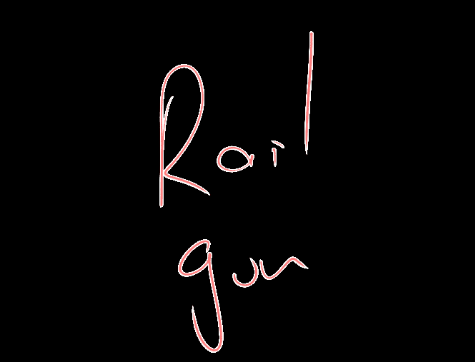 Rail
gun